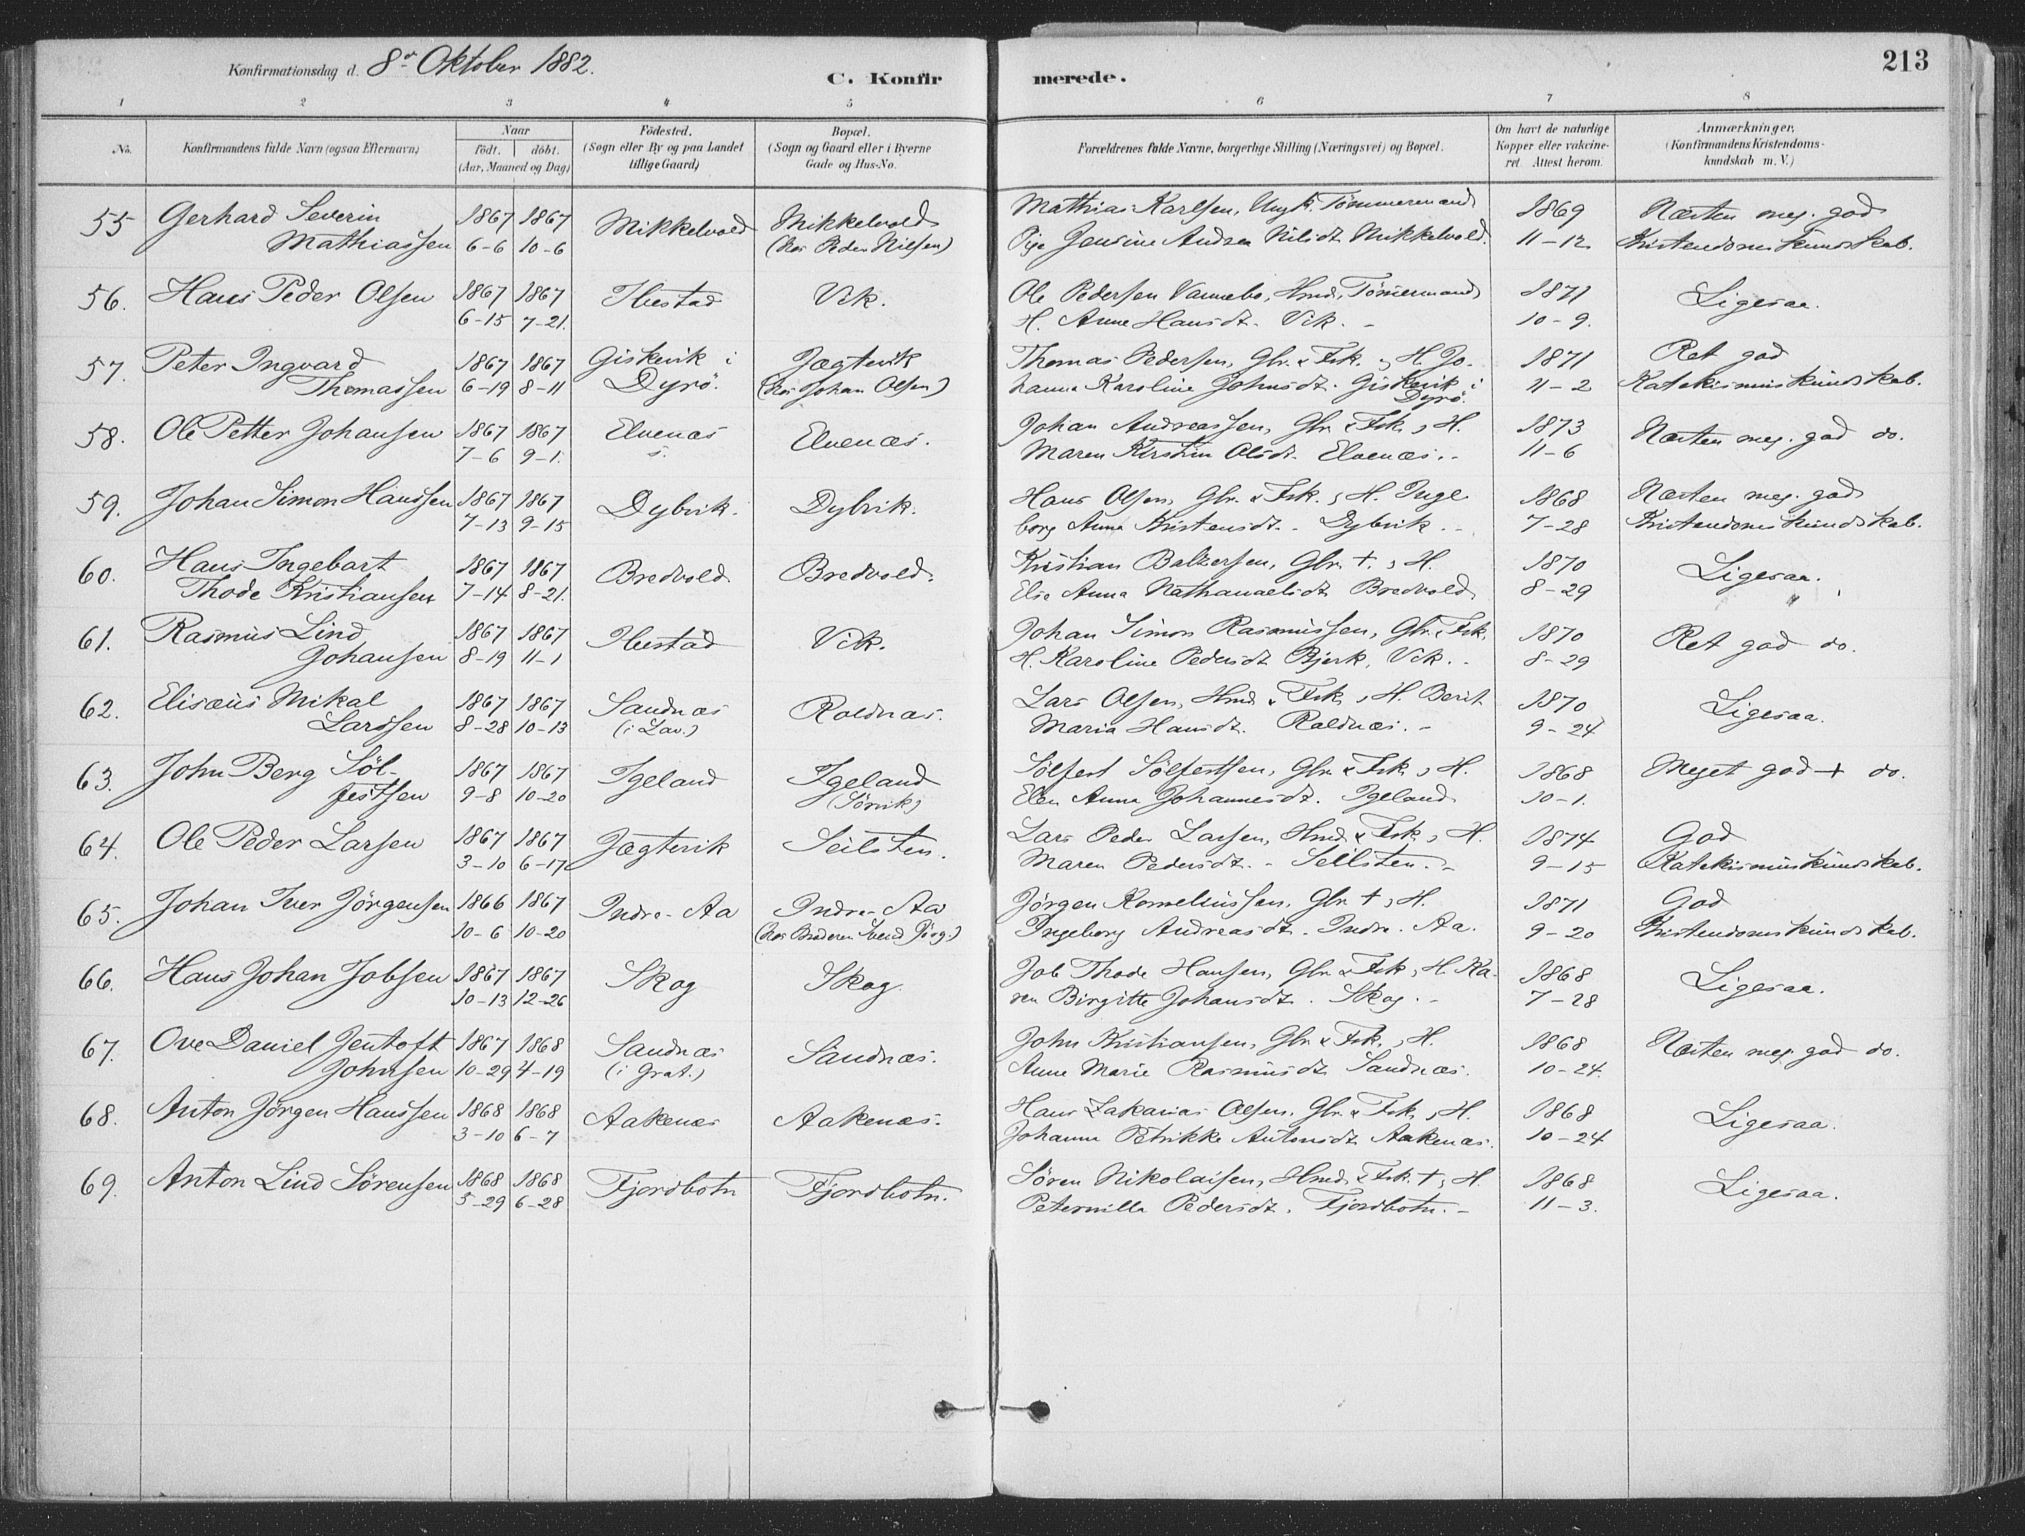 Konfirmationsdag d. 8de Oktober 1882.
C. Konfirmerede.
213
1 2 3 4 5 6 7 8
No. | Konfirmandens fulde Navn (ogsaa Efternavn) | Naar födt. döbt. (Aar, Maaned og Dag) | Födested. (Sogn eller By og paa Landet tillige Gaard) | Bopæl. (Sogn og Gaard eller i Byerne Gade og Hus-No. | Forældrenes fulde Navne, borgerlige Stilling (Næringsvei) og Bopæl. | Om havt de naturlige Kopper eller vakcineret. Attest herom. | Anmærkninger. (Konfirmandens Kristendomskundskab m. V.)
55 Gerhard Severin 1867 1867 Mikkelvold Mikkelvold Mathias Karlsen, Ungk. Tømmermand 1869 Næsten meg. god
Mathiassen 6-6 10-6 (hos Peder Nilsen) Pige Jensine Andrea Nilsdt. Mikkelvold. 11-12 Kristendomskundskab.
56. Hans Peder Olsen 1867 1867 Hestad Vik. Ole Pedersen Vannebo, Hmd, Tømmermand 1871 Ligesaa.
6-15 7-21. H. Anne Hansdt. Vik. - 10-9.
57. Peter Ingvard 1867 1867 Giskevik i Jægtvik Thomas Pedersen, Gbr. & Fsk., H. Jo- 1871 Ret god
Thomassen 6-19 8-11 Dyrö. (hos Johan Olsen) hanna Karoline Johnsdt. Giskevik i Dyrö. 11-2 Katekismuskundskab.
58. Ole Petter Johansen 1867 1867 Elvenæs Elvenæs. Johan Andreassen, Gbr. & Fsk., H. 1873 Næsten meg. god do.
7-6 9-1. s. Maren Kirstin Olsdt. Elvenæs. - 11-6
59. Johan Simon Hanssen 1867 1867 Dybvik. Dybvik. Hans Olsen, Gbr. & Fsk., H. Inge 1868 Næsten meg. god
7-13 9-15 borg Anna Kristensdt. - Dybvik. - 7-28 Kristendomskundskab.
60. Hans Ingebart 1867 1867 Bredvold Bredvold. Kristian Baltzersen, Gbr. +, H. 1870 Ligesaa.
Thode Kristiansen 7-14 8-21. Else Anna Nathanaelsdt. Bredvold 8-29
61. Rasmus Lind 1867 1867 Hestad Vik. Johan Simon Rasmussen, Gbr. & Fsk. 1870 Ret god do.
Johansen 8-19 11-1 H. Karoline Pedersdt. Bjerk, Vik. - 8-29
62. Elisæus Mikal 1867 1867 Sandnæs Roldnæs. Lars Olsen, Hmd & Fsk., H. Berit 1870 Ligesaa.
Larssen 8-28 10-13 (i Lav.) Maria Hansdt. Roldnæs. - 9-24
63. John Berg Söl- 1867 1867 Igeland Igeland Sölfest Sölfestsen, Gbr. & Fsk., H. 1868 Meget god + do.
festsen 9-8 10-20 (Sörvik) Elen Anna Johannesdt. Igeland 10-1.
64. Ole Peder Larsen 1867 1867 Jægtvik Seilsten. Lars Peder Larsen, Hmd & Fsk., H. 1874 God
3-10 6-17 Maren Pedersdt. - Seilsten. - 9-15 Katekismuskundskab.
65. Johan Iver Jörgensen 1866 1867 Indre-Aa Indre-Aa Jörgen Kornelinssen, Gbr. +, H. 1871 God
10-6 10-20 (hos Broderen Svend Jörg.) Ingeborg Andreasdt. Indre-Aa. 9-20 Kristendomskundskab.
66. Hans Johan Jobsen 1867 1867 Skog Skog Job Thode Hansen, Gbr. & Fsk., H. Ka- 1868 Ligesaa.
10-13 12-26 ren Birgitte Johansdt. Skog. - 7-28
67. Ove Daniel Jentoft 1867 1868 Sandnæs Sandnæs. John Kristiansen, Gbr. & Fsk., H. 1868 Næsten meg. god do.
Johnsen 10-29 4-19 (i Grat.) Anne Marie Rasmusdt. Sandnæs. 10-24.
68. Anton Jörgen Hanssen 1868 1868 Aakenæs Aakenæs. Hans Zakarias Olsen, Gbr. & Fsk., H. 1868 Ligesaa.
3-10 6-7 Johanna Petrikke Antonsdt. Aakenæs. 10-24
69. Anton Lind Sörensen 1868 1868 Fjordbotn Fjordbotn. Sören Nikolaisen, Hmd. & Fsk. +, H. 1868 Ligesaa.
5-29 6-28 Peternilla Pedersdt. Fjordbotn. - 11-3.